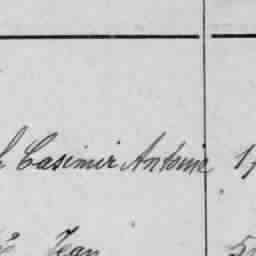 Casimir Antoine 17
Jean 5